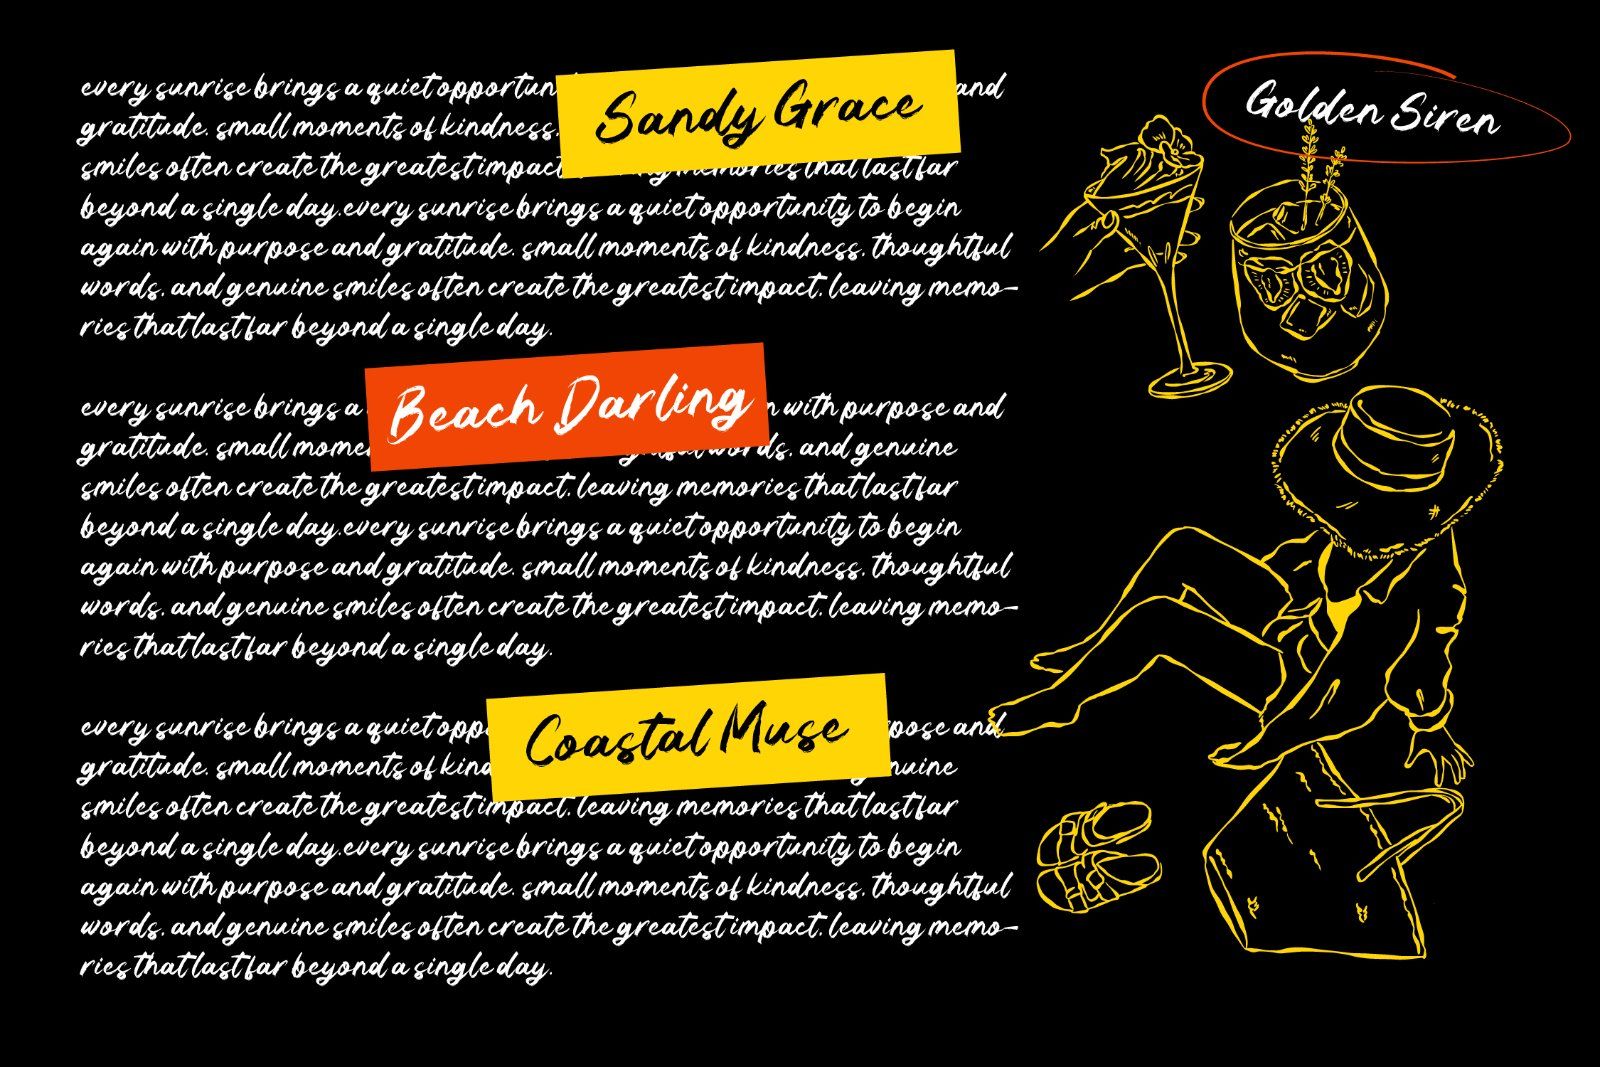 every sunrise brings a quiet opportun and
Sandy Grace
gratitude. small moments of kindness,
smiles often create the greatest impact memories that last far
beyond a single day.every sunrise brings a quiet opportunity to begin
again with purpose and gratitude. small moments of kindness, thoughtful
words, and genuine smiles often create the greatest impact, leaving memo-
ries that last far beyond a single day.
every sunrise brings a n with purpose and
Beach Darling
gratitude. small mome words, and genuine
smiles often create the greatest impact, leaving memories that last far
beyond a single day.every sunrise brings a quiet opportunity to begin
again with purpose and gratitude. small moments of kindness, thoughtful
words, and genuine smiles often create the greatest impact, leaving memo-
ries that last far beyond a single day.
every sunrise brings a quiet opp pose and
Coastal Muse
gratitude. small moments of kind nuine
smiles often create the greatest impact, leaving memories that last far
beyond a single day.every sunrise brings a quiet opportunity to begin
again with purpose and gratitude. small moments of kindness, thoughtful
words, and genuine smiles often create the greatest impact, leaving memo-
ries that last far beyond a single day.
Golden Siren